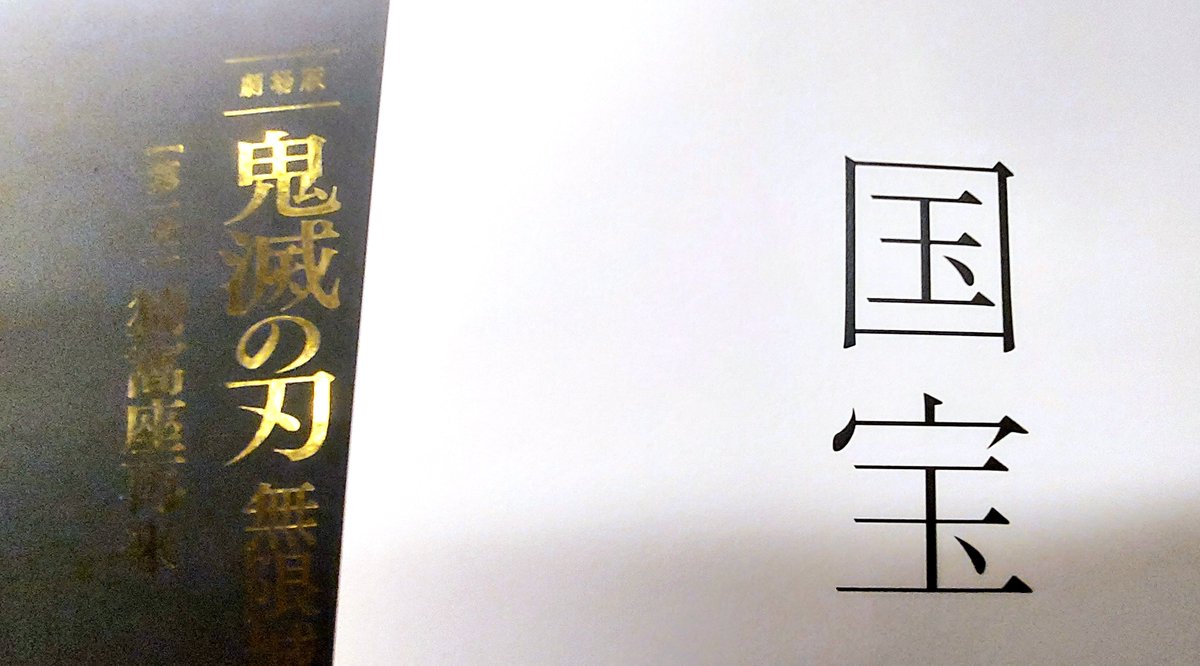 劇場版
鬼滅の刃 無限城
第一章
猗窩座再来
国宝